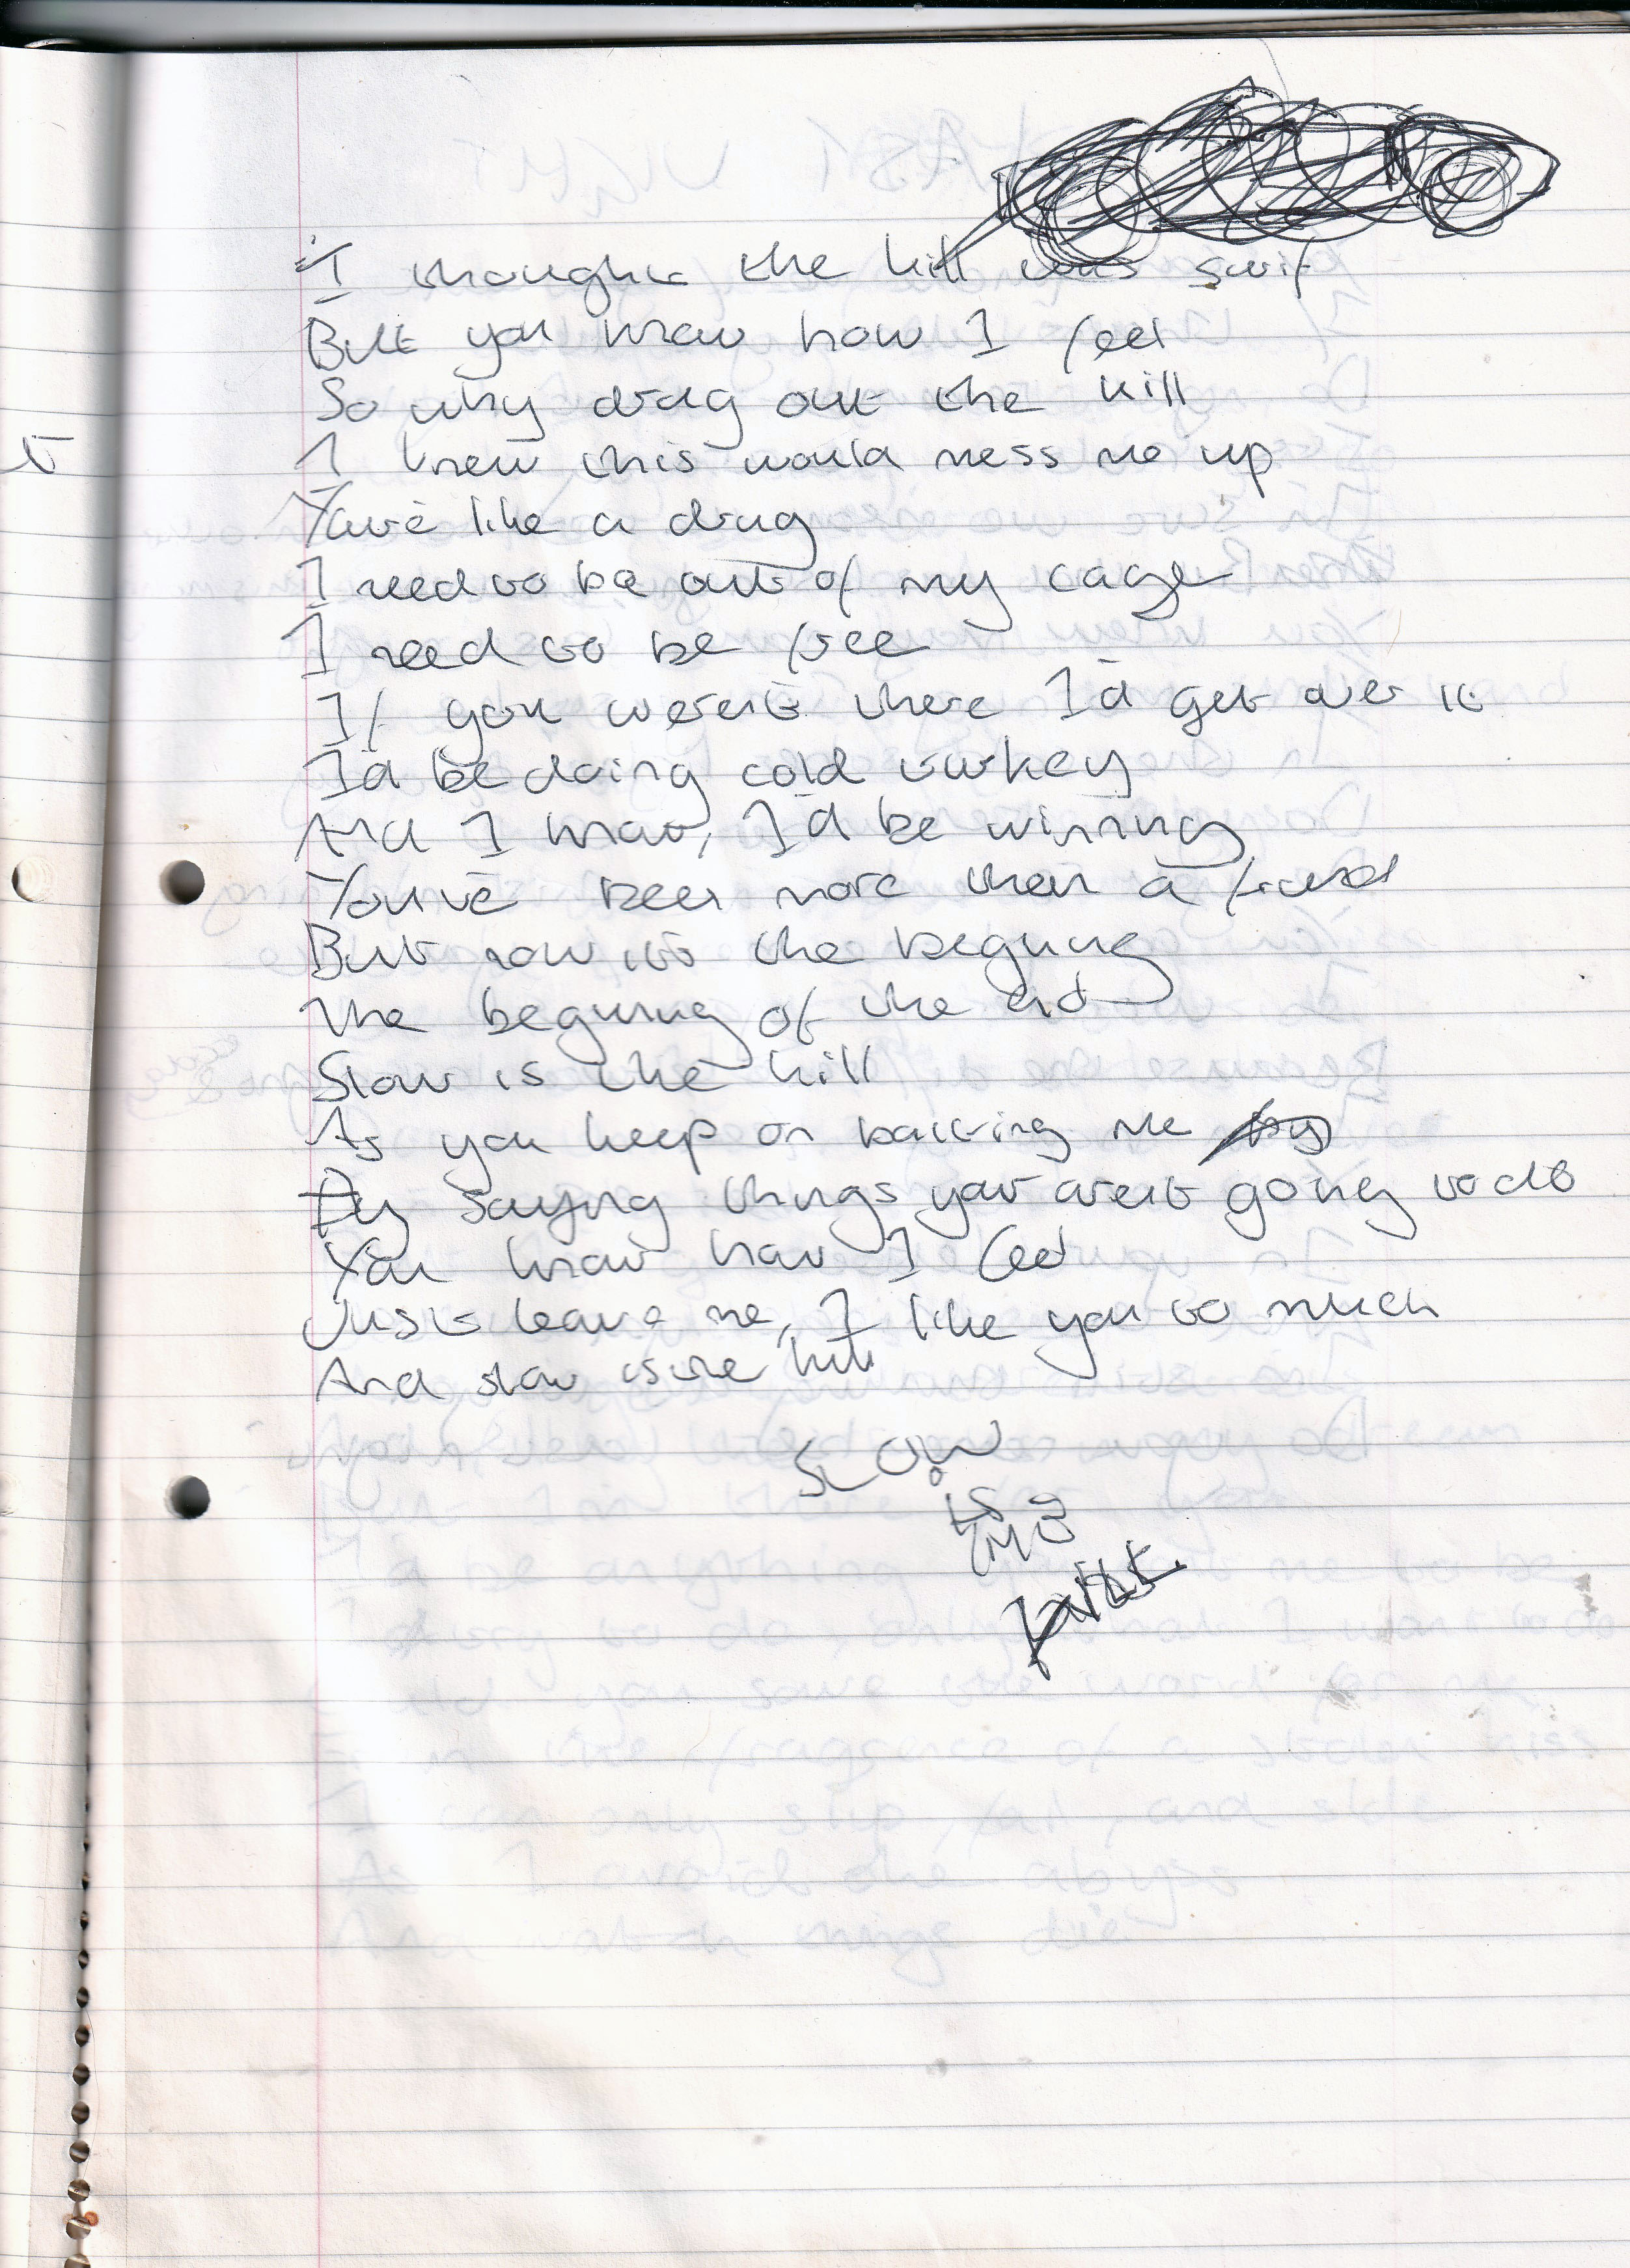 I thought the kill was swif
But you know how I feel
So why drag out the kill
I knew this would mess me up
You're like a drug
I need to be out of my cage
I need to be free
If you weren't there I'd get over it
I'd be doing cold turkey
And I know, I'd be winning
You've been more than a friend
But now its the begining
The begining of the end
Slow is the kill
As you keep on baiting me by
By saying things your arent going to do
You know how I feel
Just leave me, I like you to much
And slow is the kill
SLOW
IS
THE